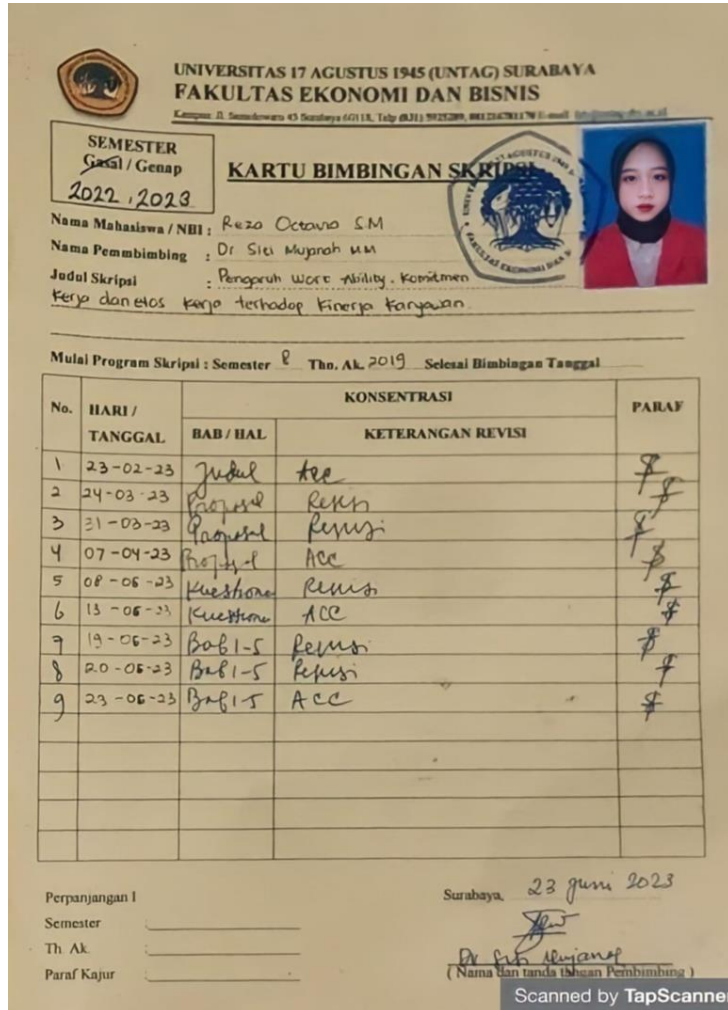 UNIVERSITAS 17 AGUSTUS 1945 (UNTAG) SURABAYA
FAKULTAS EKONOMI DAN BISNIS
SEMESTER
Gasal / Genap
2022 , 2023
KARTU BIMBINGAN SKRIPSI
Nama Mahasiswa / NBI : Reza Octavia S.M
Nama Pemmbimbing : Dr Siti Mujanah MM
Judul Skripsi : Pengaruh Work Ability. Komitmen
Kerja dan etos kerja terhadap kinerja karyawan
Mulai Program Skripsi : Semester 8 Thn. Ak. 2019 Selesai Bimbingan Tanggal
No. HARI / TANGGAL KONSENTRASI PARAF
BAB / HAL KETERANGAN REVISI
1 23-02-23 Judul Acc
2 24-03-23 Proposal Revisi
3 31-03-23 Proposal Revisi
4 07-04-23 Proposal ACC
5 08-06-23 Kuestione Revisi
6 13-06-23 Kuestione ACC
7 19-06-23 Bab 1-5 Revisi
8 20-06-23 Bab 1-5 Revisi
9 23-06-23 Bab 1-5 ACC
Perpanjangan I
Semester :
Th. Ak. :
Paraf Kajur :
Surabaya, 23 Juni 2023
Dr Siti Mujanah
( Nama dan tanda tangan Pembimbing )
Scanned by TapScanner